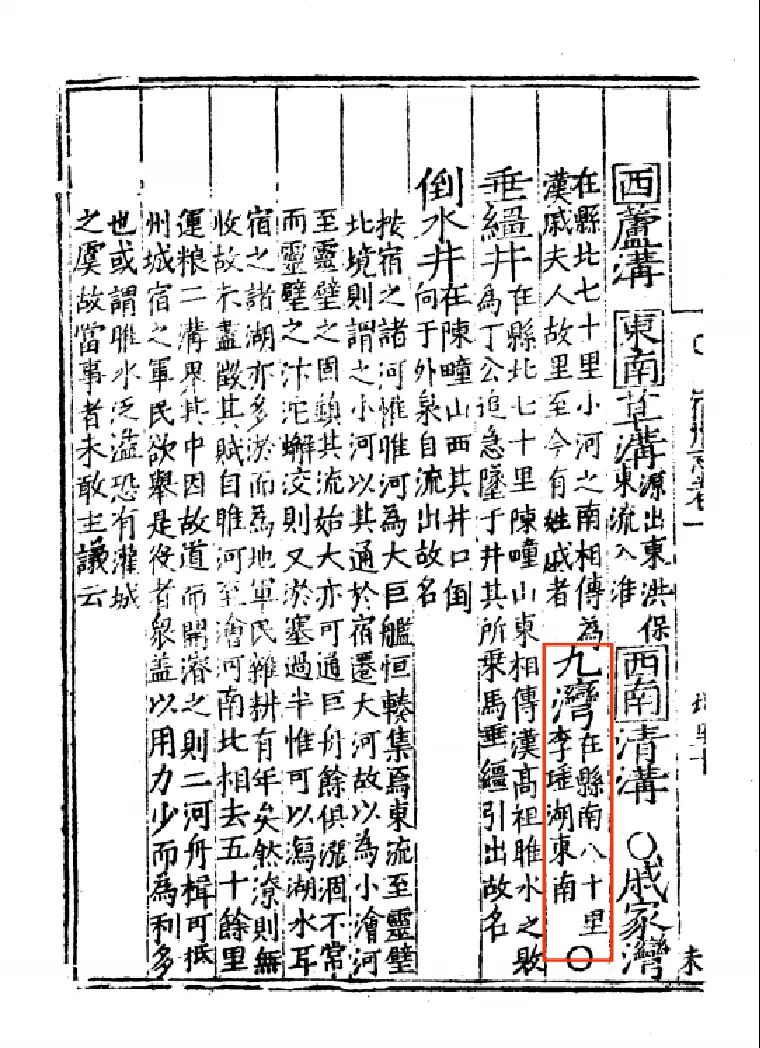 西蘆溝 東南 草溝 源出東洪保
東流入淮
西南 清溝 ○戚家灣
在縣北七十里小河之南相傳為
漢戚夫人故里至今有姓戚者
九灣 在縣南八十里
李瑶湖東南 ○
垂緼井 在縣北七十里陳疃山東相傳漢高祖睢水之敗
為丁公追急墜于井其所乘馬垂繮引出故名
倒水井 在陳疃山西其井口倒
向于外泉自流出故名
按宿之諸河惟睢河為大巨艦恒輳集焉東流至靈璧
北境則謂之小河以其通於宿遷大河故以為小澮河
至靈璧之固鎮其流始大亦可通巨舟餘俱漲涸不常
而靈璧之汴沱澥洨則又淤塞過半惟可以瀉湖水耳
宿之諸湖亦多淤而為地軍民雜耕有年矣然潦則無
收故未盡徵其賦自睢河至澮河南北相去五十餘里
運粮二溝界其中因故道而開濬之則二河舟楫可抵
州城宿之軍民欲舉是役者眾盖以用力少而為利多
也或謂睢水泛溢恐有灌城
之虞故當事者未敢主議云